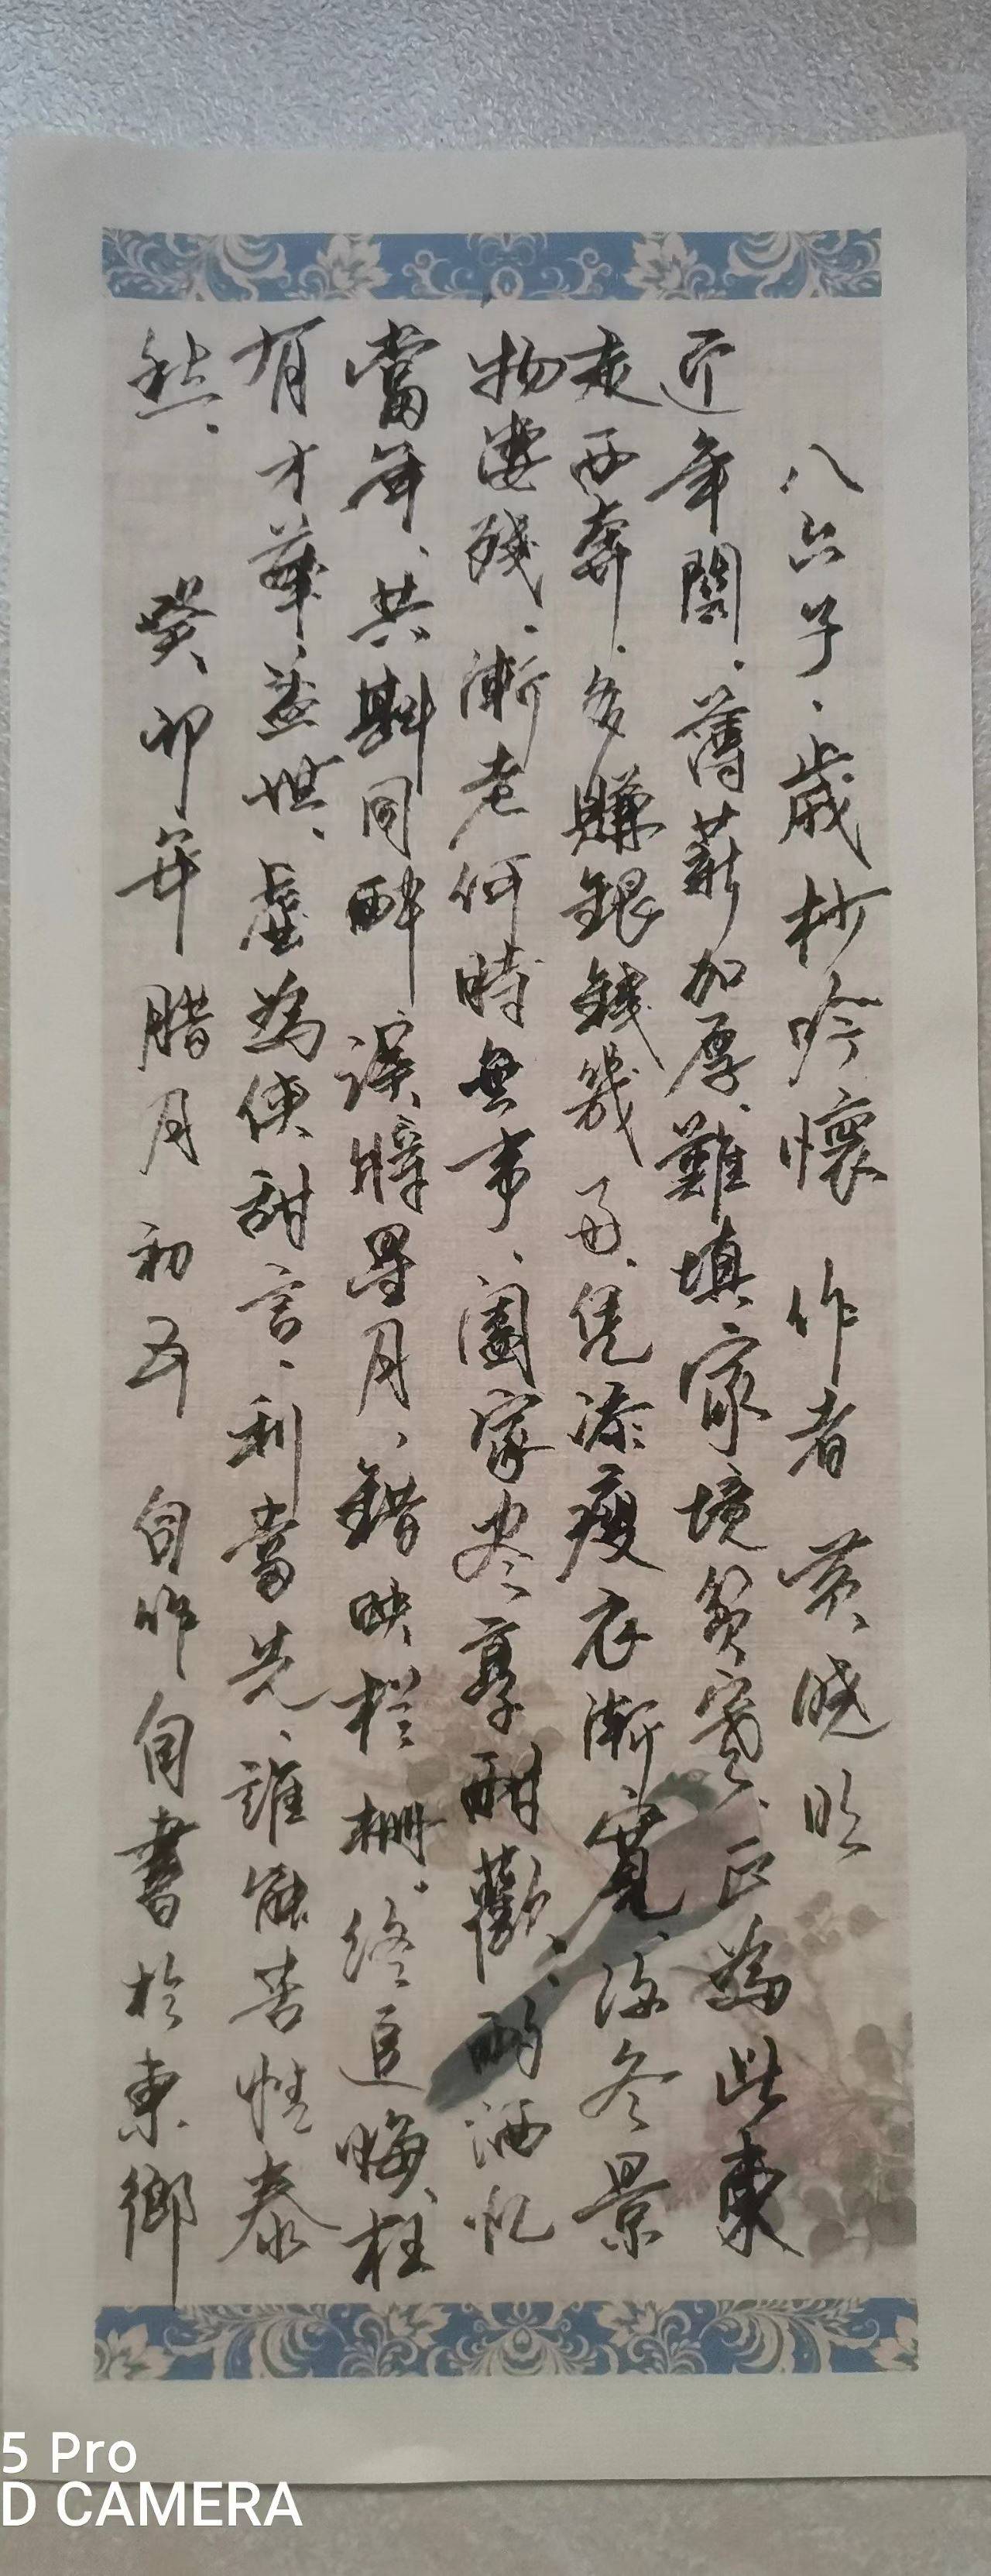 八六子、歲杪吟懷 作者 黃曉昕
近年關、薄薪加厚、難填、家境貧寒、正為此東
走西奔、多賺銀錢幾毋、凭添瘦衣漸寬、深冬景
物淒殘、漸老何時無事、闔家尽享酣歡、酌酒忆
當年、共斟同醉、誤將星月、錯映栏柵、終追悔、枉
有才華蓋世、虛為使甜言、利當先、誰能苦情泰
然、 癸卯年 腊月初五 自作自書於東鄉
5 Pro
D CAMERA